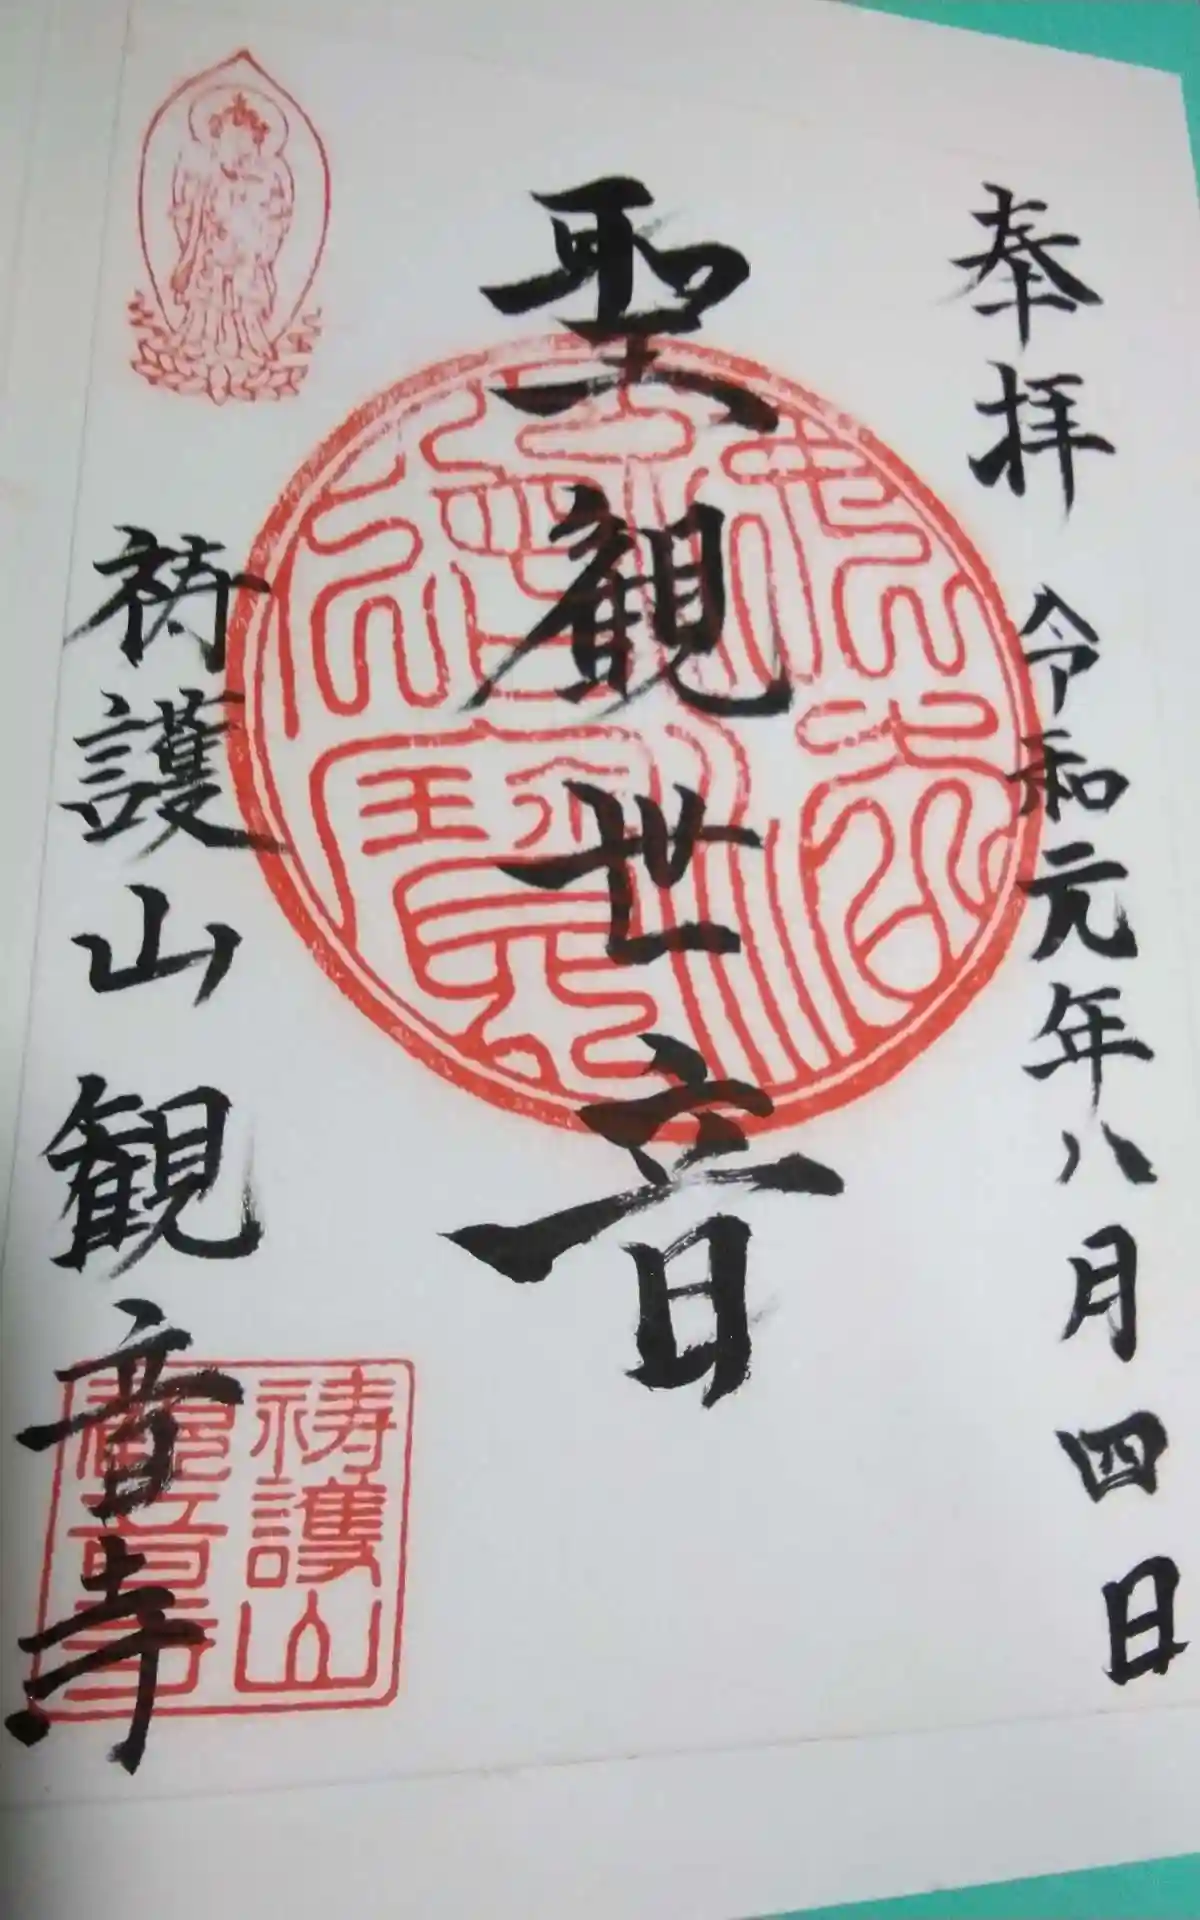 奉拝 令和元年八月四日
聖観世音
祷護山 観音寺
祷護山
觀音寺